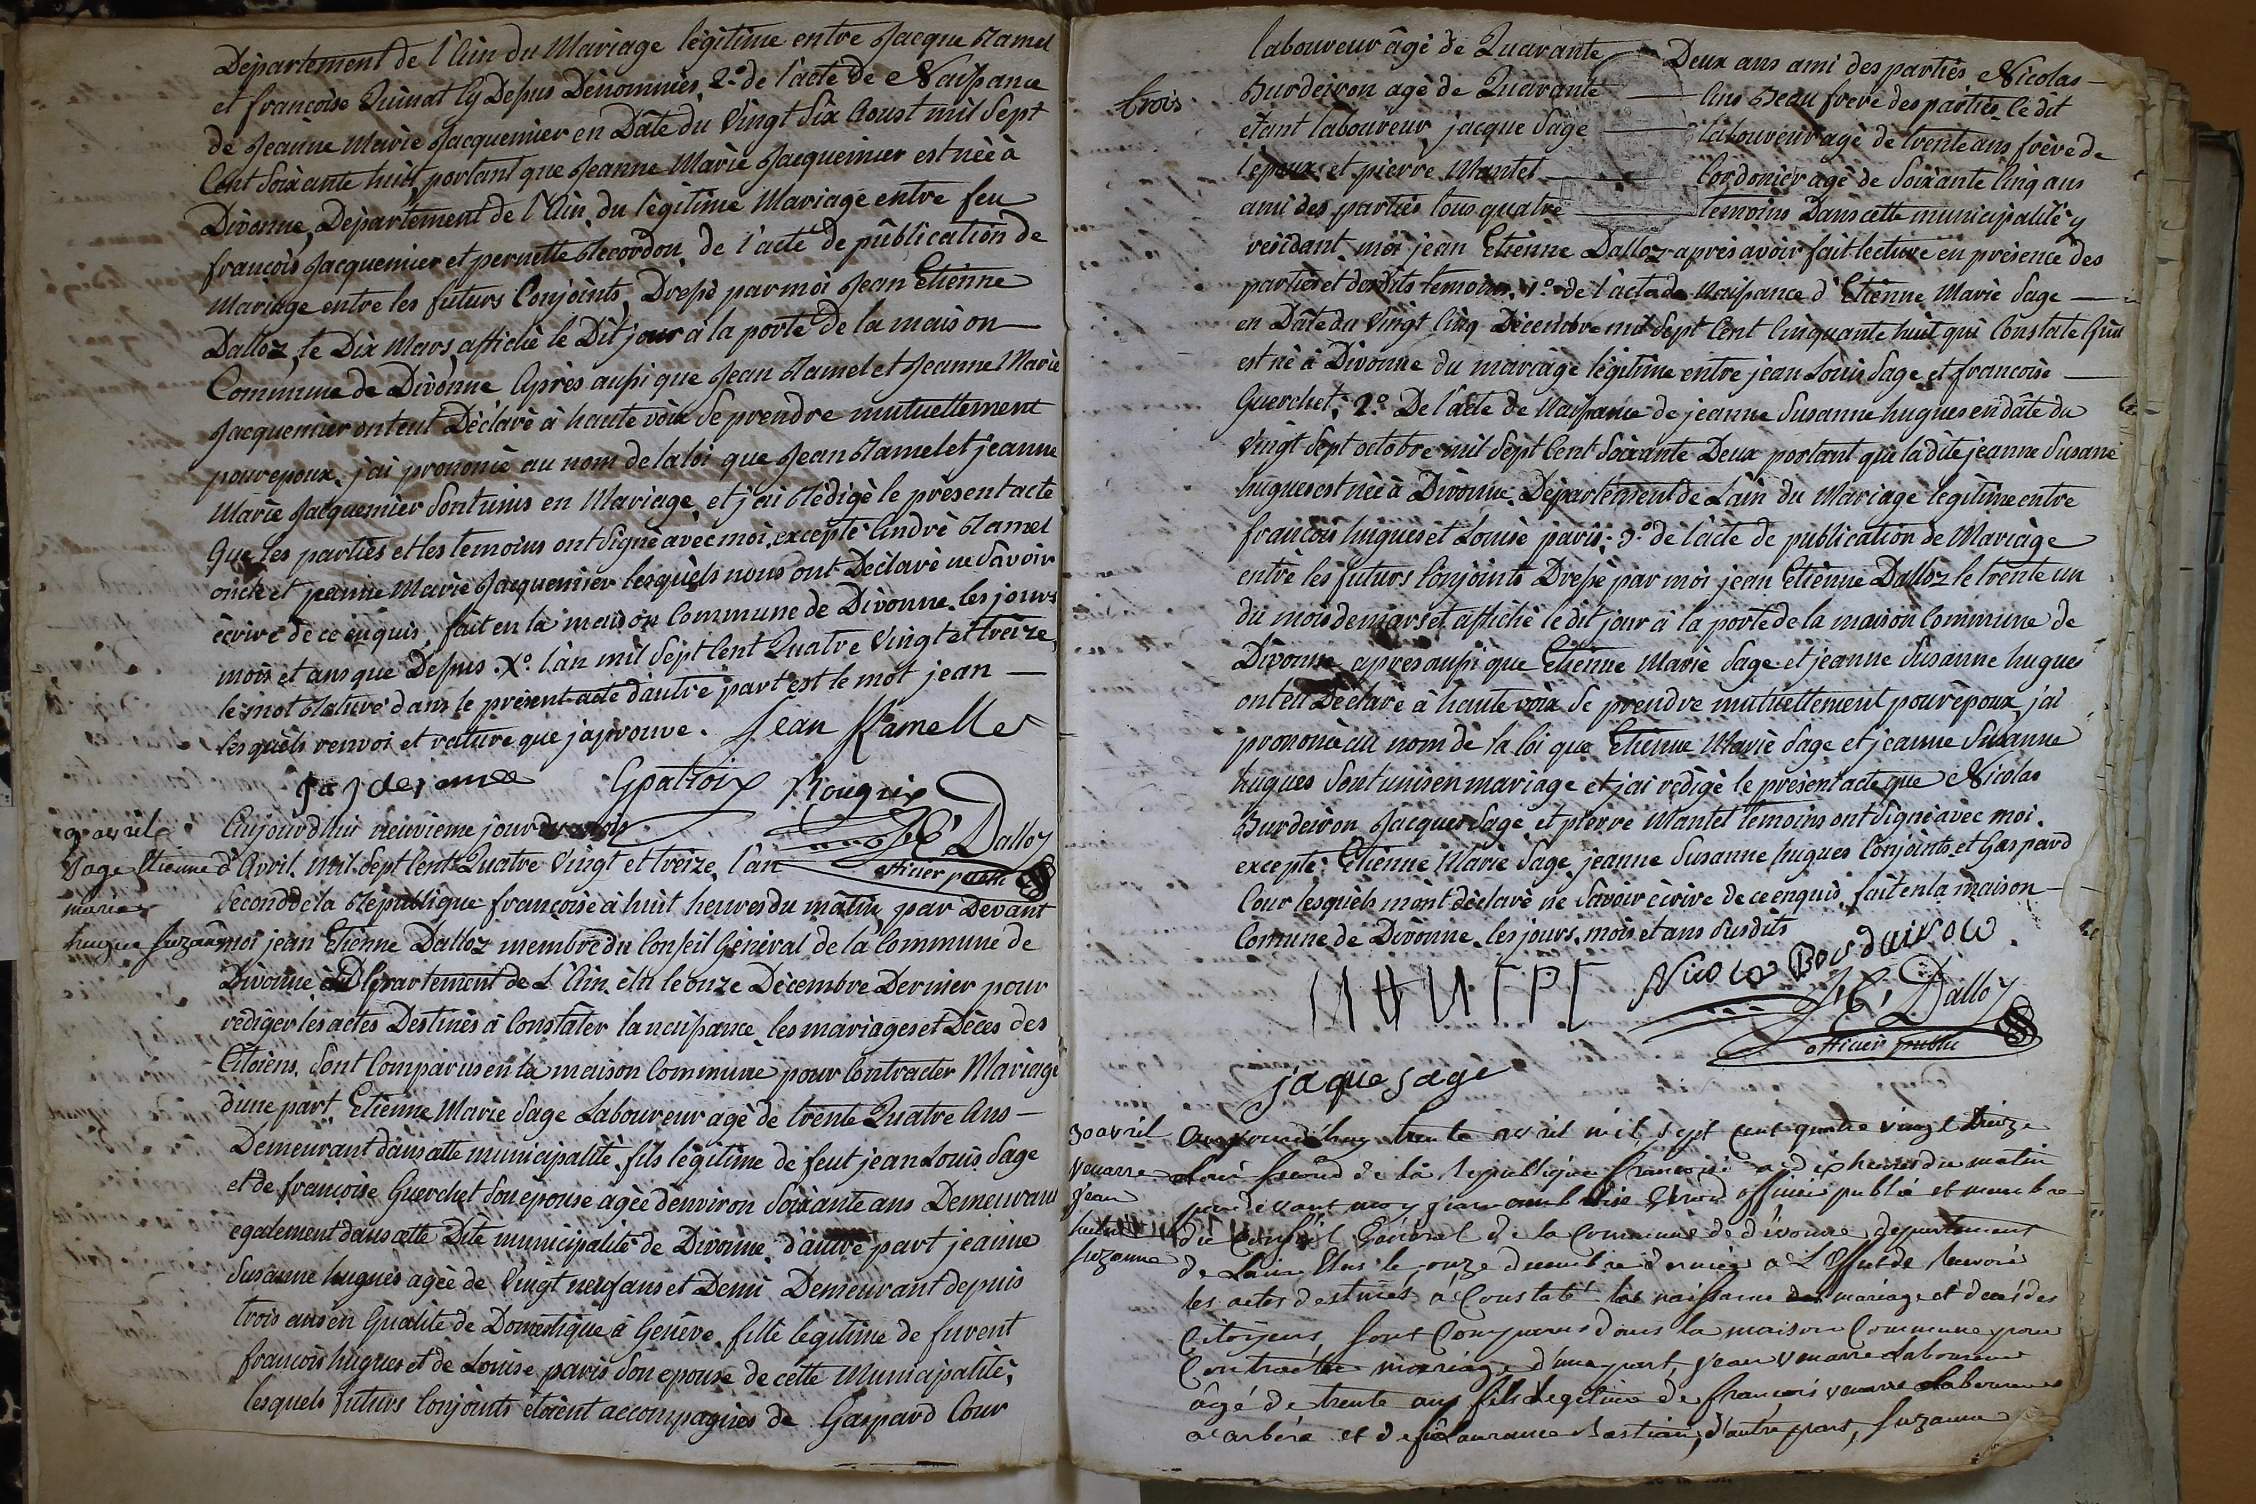 Département de l'Ain du Mariage légitime entre Jacque Ramel
et françoise Quinat Cy Dessus Dénommiés, 2.° de l'acte de Naissance
de Jeanne Marie Jacquemier en Dâte du Vingt Six Aoust mil Sept
Cent Soixante huit, portant que Jeanne Marie Jacquemier est née à
Divonne, Département de l'Ain, du légitime Mariage entre feu
françois Jacquemier et pernette Recordon, de l'acte de publication de
Mariage entre les futurs Conjoints, Dressé par moi Jean Etienne
Dalloz, le Dix Mars, affiché le Dit jour à la porte de la maison
Commune de Divonne Après aussi que Jean Ramel et Jeanne Marie
Jacquemier ont eut Déclaré à haute voix Se prendre mutuellement
pour epoux, j'ai prononcé au nom de la loi que Jean Ramel et jeanne
Marie Jacquemier Sont unis en Mariage, et j'ai Rédigé le présent acte
Que les parties et les temoins ont Signé avec moi, excepté André Ramel
oncle et jeanne Marie Jacquemier lesquèls nous ont Déclaré ne Savoir
écrire de ce enquis, fait en la maison Commune de Divonne, les jours
mois et ans que Dessus. X.° l'an mil Sept Cent Quatre Vingt et treize,
le mot Raturé dans le présent acte d'autre part est le mot jean
lesquèls renvoi et rature que j'aprouve. Jean Ramelle
Gpatroix Rouguix
JE Dalloz
officier public
9 avril
Sage Etienne
marie
hugue Suzanne
Aujourd'hui neuvième jour du mois
d'Avril, Mil Sept Cent Quatre Vingt et treize, l'an
Second de la République françoise à huit heures du matin, par Devant
moi jean Etienne Dalloz membre du Conseil Général de la Commune de
Divonne Département de L'Ain, élu le onze Décembre Dernier pour
rédiger les actes Destinés à Constater la naissance, les mariages et Décès des
Citoiens, Sont Comparus en la maison Commune pour Contracter Mariage
d'une part, Etienne Marie Sage Laboureur agé de trente Quatre Ans
Demeurant dans cette municipalité, fils légitime de feut jean Louis Sage
et de françoise Guerchet Son epouse agée d'environ Soixante ans Demeurant
egalement dans cette Dite municipalité de Divonne, d'autre part jeanne
Susanne hugues agée de Vingt neuf ans et Demi Demeurant depuis
trois ans en Qualité de Domestique à Genève, fille legitime de furent
françois hugues et de Louise paris Son epouse de cette Municipalité;
lesquels futurs Conjoints étoient accompagnés de Gaspard Cour
laboureur âgé de Quarante Deux ans ami des parties Nicolas
trois
Burdeiron agé de Quarante Ans Beau frere des parties, le dit
etant laboureur, jacque Sage laboureur agé de trente ans frère de
l'epoux, et pierre Mantel Cordonier agé de Soixante Cinq ans
ami des parties tous quatre temoins Dans cette municipalité y
residant, moi jean Etienne Dalloz après avoir fait lecture en présence des
parties et desdits temoins, 1.° de l'acte de Naissance d'Etienne Marie Sage
en Date du Vingt Cinq Décembre mil Sept Cent Cinquante huit qui Constate Qu'il
est né à Divonne du mariage légitime entre jean Louis Sage et francoise
Guerchet; 2.° De l'acte de Naissance de jeanne Susanne hugues en dâte du
Vingt Sept octobre mil Sept Cent Soixante Deux portant que la dite jeanne Susane
hugues est née à Divonne, Département de Lain du Mariage legitime entre
francois hugues et Louise paris; 3.° de l'acte de publication de Mariage
entre les futurs Conjoints Dressé par moi jean Etienne Dalloz le trente un
du mois de mars et affiché le dit jour à la porte de la maison Commune de
Divonne apres aussi que Etienne Marie Sage et jeanne Susanne hugues
ont eu Déclaré à haute voix Se prendre mutuellement pour epoux j'ai
prononcé au nom de la loi que Etienne Marie Sage et jeanne Susanne
hugues Sont unis en mariage et j'ai rédigé le présent acte que Nicolas
Burdeiron Jacques Sage et pierre Mantel temoins ont Signé avec moi,
excepté Etienne Marie Sage, jeanne Susanne hugues Conjoints et Gaspard
Cour lesquèls m'ont déclaré ne Savoir écrire de ce enquis, fait en la maison
Comune de Divonne, les jours, mois et ans Susdits
Nicola Bourdairon
JE Dalloz
officier public
jaque sage
30 avril
Venarre
Jean
Suzanne
Aujourd'huy trente avril mil sept cent quatre vingt treize
Second de la Republique francoise a dix heures du matin
par devant moy officier public et membre
du Conseil Général de la Commune de divonne departement
de Lain Elus le onze decembre dernier a L'Effet de
les actes destinés a Constaté les naissance mariage et décés des
Citoyens, Sont Comparus dans la maison Commune pour
Contracter mariage d'une part, Jean Venarre Laboureur
âgé de trente ans fils Legitime de francois venarre Laboureur
a arbere et de Laurance Bastian, d'autre part, Suzanne